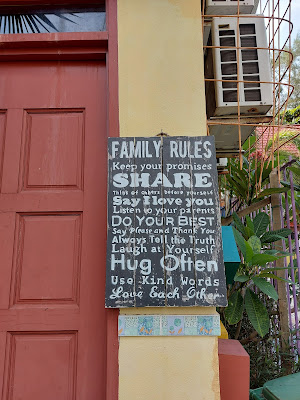 FAMILY RULES
Keep your promises
SHARE
Think of others before yourself
Say I love you
Listen to your parents
DO YOUR BEST
Say Please and Thank You
Always Tell the Truth
Laugh at Yourself
Hug Often
Use Kind Words
Love Each Other